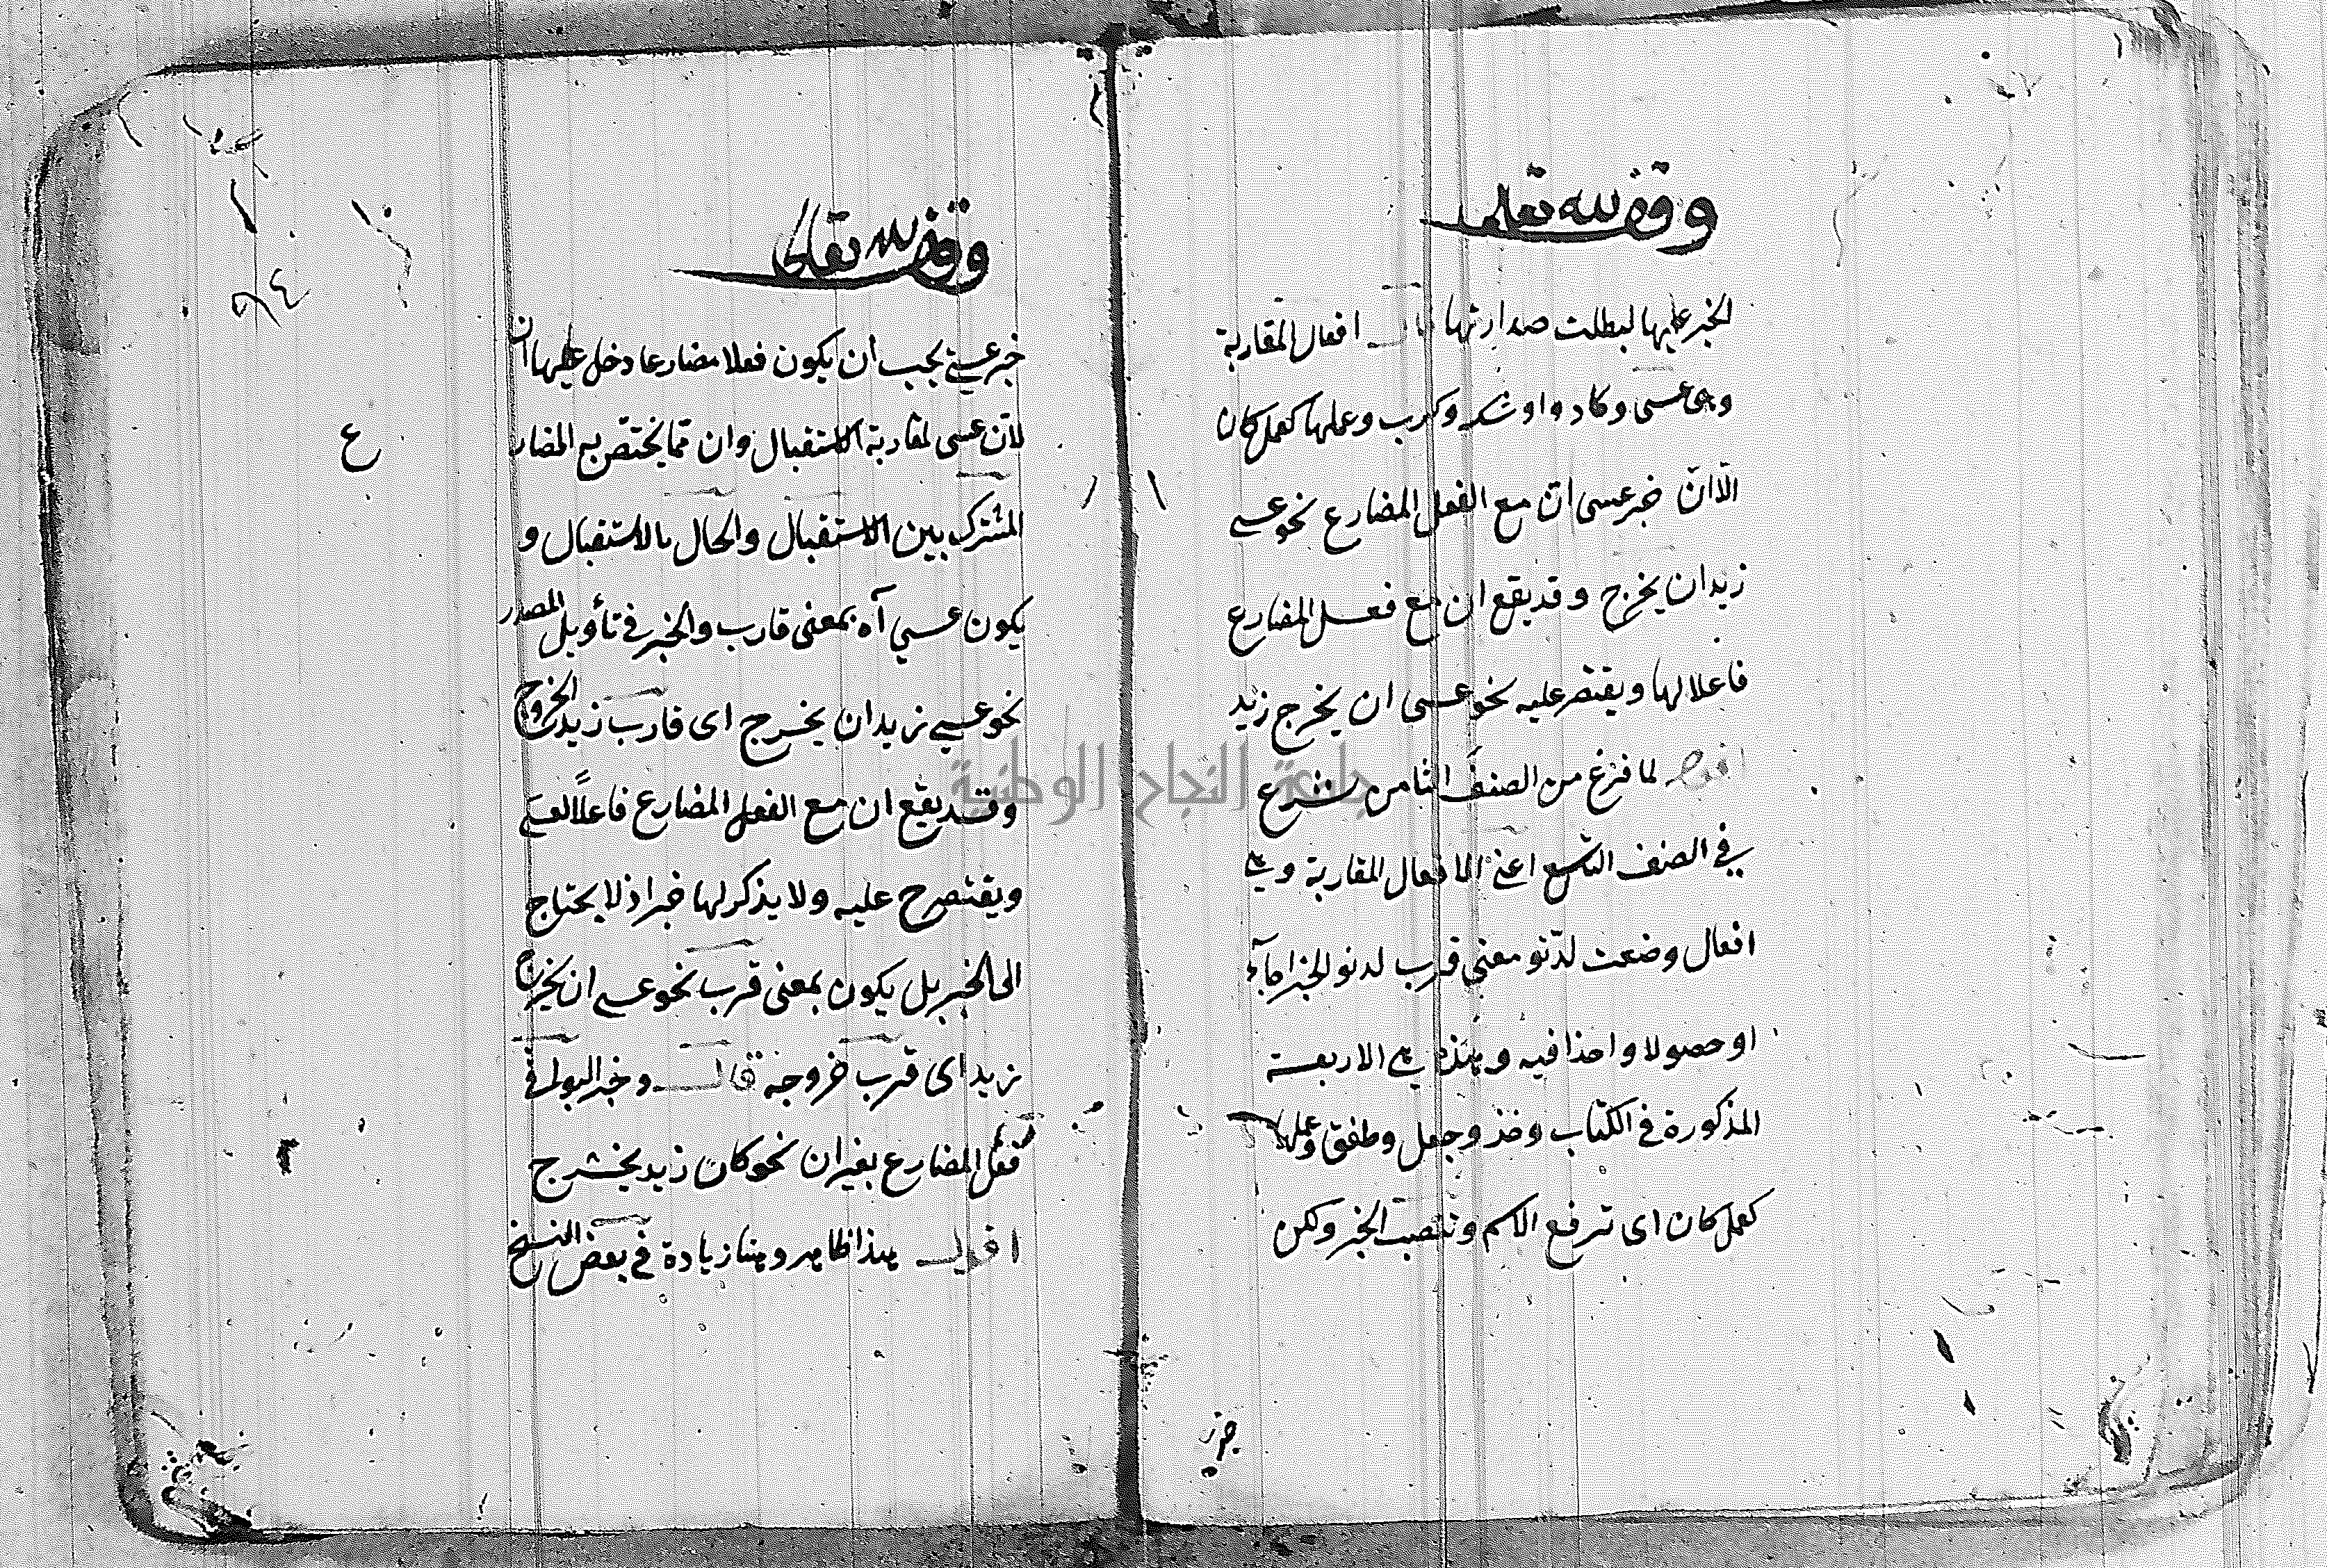 وقف لله تعلى
الخبر عليها لبطلت صدارتها قال افعال المقاربة
وهى عسى وكاد واوشك وكرب وعملها كعمل كان
الاّ انّ خبر عسى ان مع الفعل المضارع نحو عسى
زيد ان يخرج وقد يقع ان مع فعل المضارع
فاعلا لها ويقتصر عليه نحو عسى ان يخرج زيد
اقول لما فرغ من الصنف الثامن شرع
في الصنف التاسع اعنى الافعال المقاربة وهي
افعال وضعت لدنو معنى قرب لدنو الخبر رجآء
او حصولا واخذا فيه وهذه هي الاربعة
المذكورة في الكتاب واخذ وجعل وطفق وعملها
كعمل كان اى ترفع الاسم وتنصب الخبر ولكن
خبر
وقف لله تعالى
خبر عسى يجب ان يكون فعلا مضارعا دخل عليها ان
لانّ عسى لمقاربة الاستقبال وان ممّا يختصّ به المضار
ع
المشترك بين الاستقبال والحال بالاستقبال و
يكون عسى آه بمعنى قارب والخبر في تأويل المصدر
نحو عسى زيد ان يخرج اى قارب زيد الخروج
وقد يقع ان مع الفعل المضارع فاعلاً لعسى
ويقتصر ح عليه ولا يذكر لها خبر اذ لا يحتاج
الى الخبر بل يكون بمعنى قرب نحو عسى ان يخرج
زيد اى قرب خروجه قال وخبر البواقى
فعل المضارع بغير ان نحو كان زيد يخرج
اقول هذا ظاهر وهنا زيادة في بعض النسخ
جامعة النجاح الوطنية